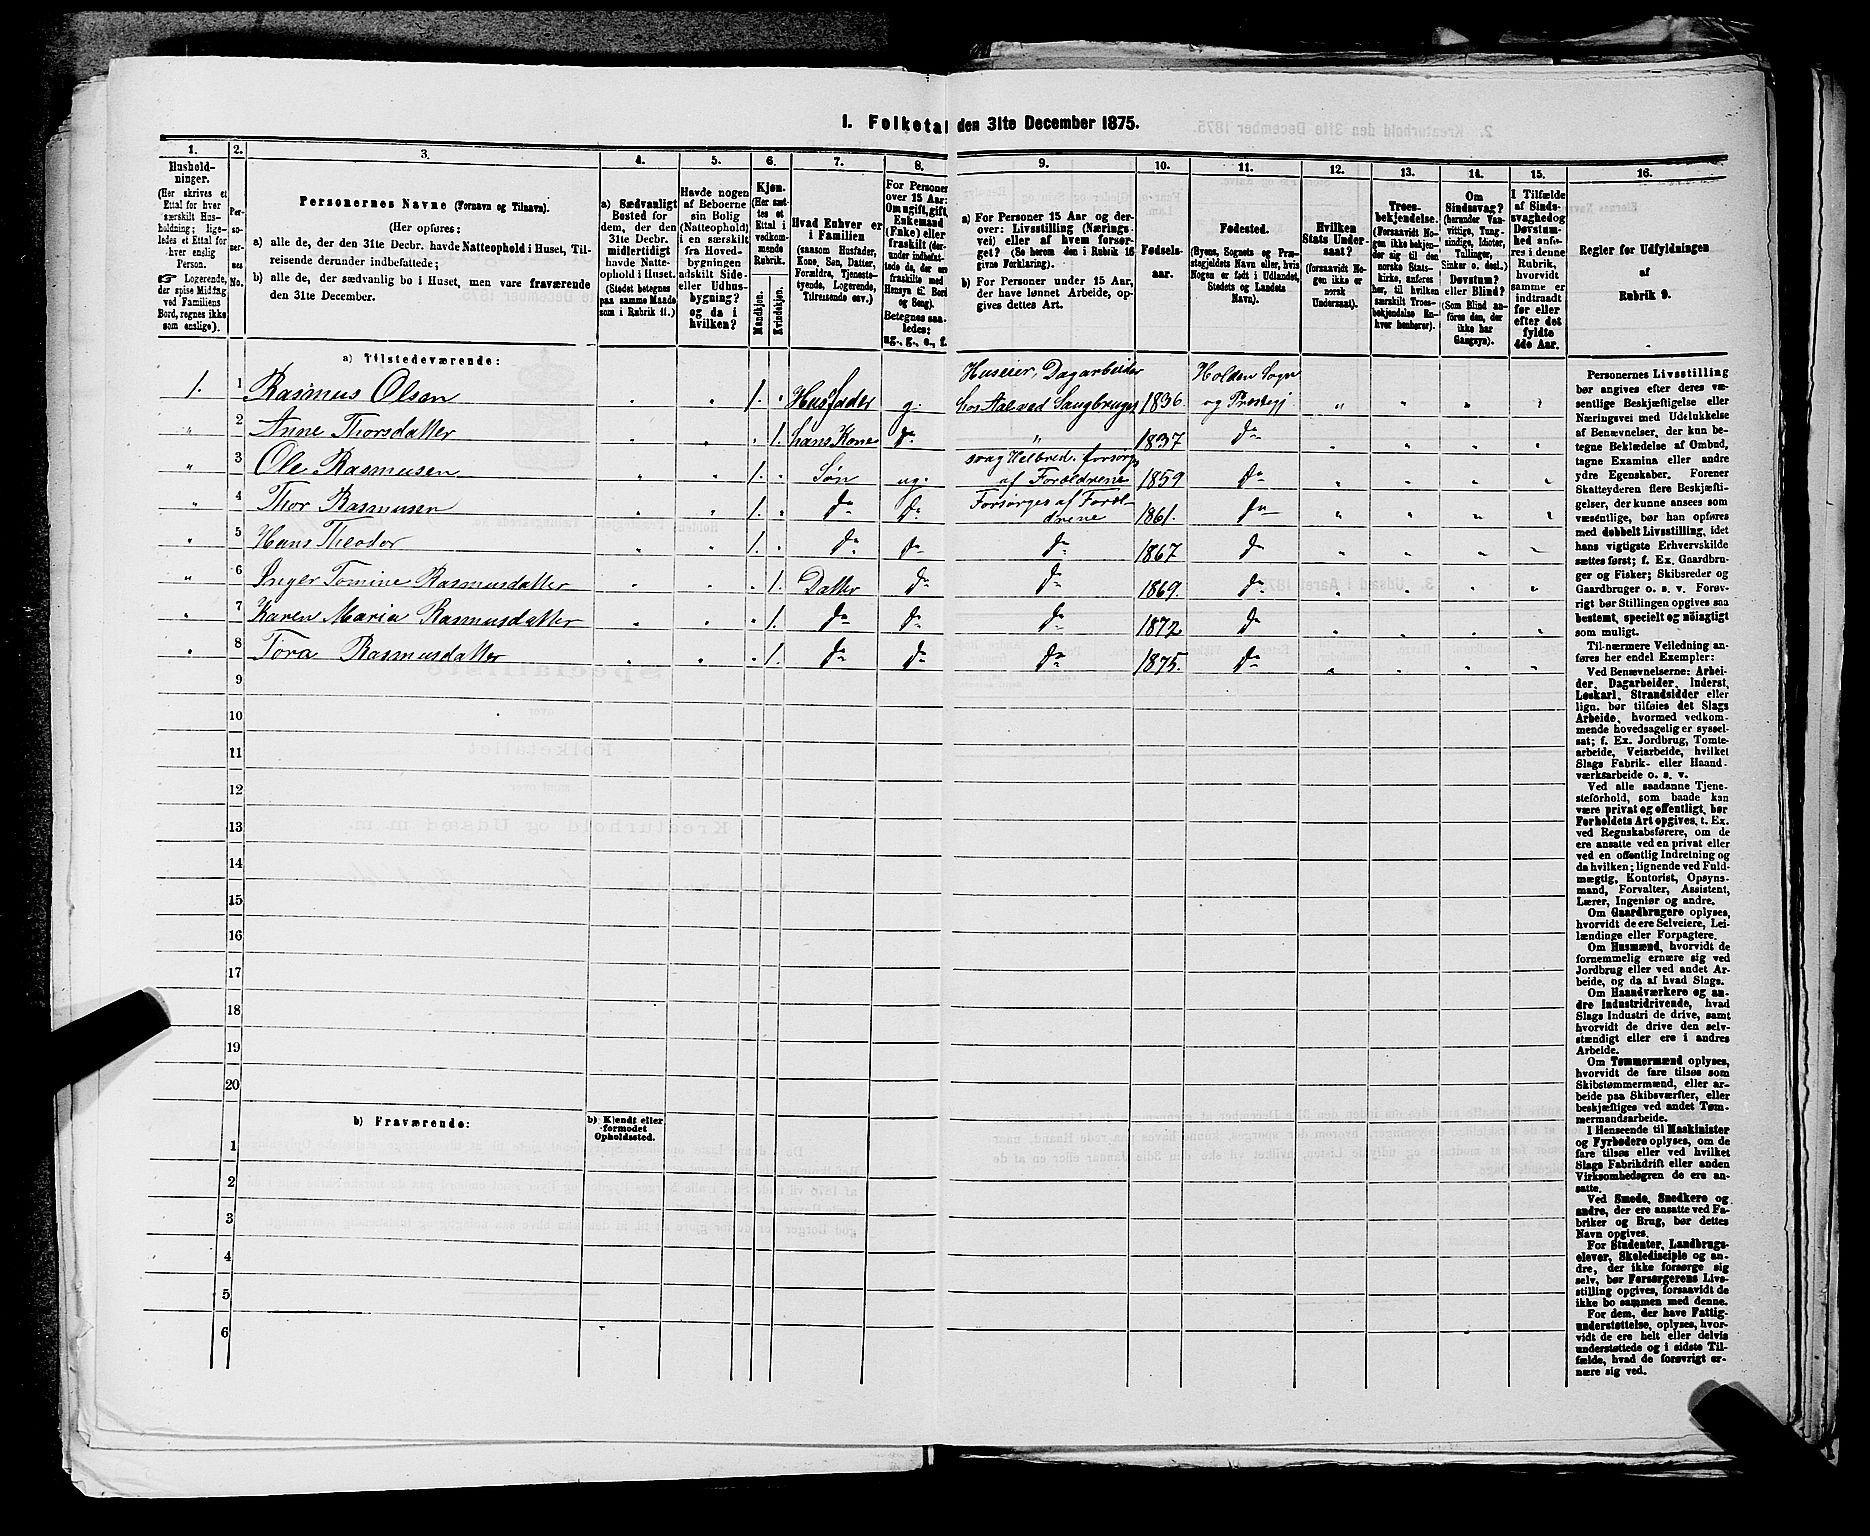 1. Folketal den 31te December 1875.
1.
2.
3.
4.
5.
6.
7.
8.
9.
10.
11.
12.
13.
14.
15.
16.
Husholdninger.
(Her skrives et
Ettal for hver
særskilt Husholdning; ligeledes
et Ettal for
hver enslig
Person.
Logerende,
der spise Middag
ved Familiens
Bord, regnes ikke
som enslige).
Personernes No.
Personernes Navne (Fornavn og Tilnavn).
(Her opføres:
a) alle de, der den 31te Decbr. havde Natteophold i Huset, Tilreisende derunder indbefattede;
b) alle de, der sædvanlig bo i Huset, men vare fraværende
den 31te December.
a) Sædvanligt
Bosted for
dem, der den
31te Decbr.
midlertidigt
havde Natteophold i Huset.
(Stedet betegnes
paa samme Maade
som i Rubrik 11.)
Havde nogen
af Beboerne
sin Bolig
(Natteophold)
i en særskilt
fra Hovedbygningen
adskilt Side-
eller Udhusbygning?
og da i
hvilken?
Kjøn.
(Her sættes et
Ettal i
vedkommende
Rubrik.
Mandkjøn.
Kvindekjøn.
Hvad Enhver er
i Familien
(saasom Husfader,
Kone, Søn, Datter,
Forældre, Tjenestetyende, Logerende,
Tilreisende osv.)
For Personer
over 15 Aar:
Om ugift, gift,
Enkemand
(Enke) eller
fraskilt (derunder indbefattede da, der ere
fraskilte med
Hensyn til Bord
og Seng).
Betegnes saaledes:
ug., g., e., f.
a) For Personer 15 Aar og derover: Livsstilling (Næringsvei) eller af hvem forsørget? (Se herom den i Rubrik 16
givne Forklaring).
b) For Personer under 15 Aar,
der have lønnet Arbeide, opgives dettes Art.
Fødselsaar.
Fødested.
(Byens, Sognets og Præstegjeldets Navn eller, hvis
Nogen er født i Udlandet,
Stedets og Landets
Navn).
Hvilken
Stats Undersaat?
(forsaavidt Nogen ikke er
norsk
Undersaat).
Troesbekjendelse.
(Forsaavidt Nogen ikke bekjender sig til den
norske Statskirke, anføres
her, til hvilken
særskilt Troesbekjendelse Enhver henhører).
Om
Sindssvag?
(herunder Vanvittige, Tungsindige, Idioter,
Tullinger,
Sinker o. desl.)
Døvstum?
eller Blind?
(Som Blind anføres den, der
ikke har
Gangsyn).
I Tilfælde
af Sindssvaghed og
Døvstumhed anføres i denne
Rubrik,
hvorvidt
samme er
indtraadt
før eller
efter det
fyldte
4de Aar.
Regler for Udfyldningen
af
Rubrik 9.
a) Tilstedeværende:
1. 1 Rasmus Olsen " " 1. " Husfader g. Huseier, Dagarbeider hos Aal ved Saugbruget 1836. Holden Sogn og Prestegj " " " "
" 2 Anne Thorsdatter " " " 1. hans Kone do " 1837 do " " " "
" 3 Ole Rasmusen " " 1. " Søn ug. svag Helbred. forsørg. af Forældrene 1859 do " " " "
" 4 Thor Rasmusen " " 1. " do do Forsørges af Forældrene 1861. do " " " "
" 5 Hans Theodor " " 1. " do do do 1867 do " " " "
" 6 Inger Tomine Rasmusdatter " " " 1. Datter do do 1869. do " " " "
" 7 Karen Maria Rasmusdatter " " " 1. do do do 1872 do " " " "
" 8 Tora Rasmusdatter " " " 1. do do do 1875. do " " " "
9
10
11
12
13
14
15
16
17
18
19
20
b) Fraværende:
b) Kjendt eller
formodet
Opholdssted.
1
2
3
4
5
6
Personernes Livsstilling
bør angives efter deres væsentlige Beskjæftigelse eller
Næringsvei med Udelukkelse
af Benævnelser, der kun betegne Beklædelse af Ombud,
tagne Examina eller andre
ydre Egenskaber. Forener
Skatteyderen flere Beskjæftigelser, der kunne ansees som
væsentlige, bør han opføres
med dobbelt Livsstilling, idet
hans vigtigste Erhvervskilde
sættes først; f. Ex. Gaardbruger og Fisker; Skibsreder og
Gaardbruger o. s. v. Forøvrigt bør Stillingen opgives saa
bestemt, specielt og nøiagtigt
som muligt.
Til nærmere Veiledning anføres her endel Exempler:
Ved Benævnelserne: Arbeider, Dagarbeider, Inderst,
Løskarl, Strandsidder eller
lign. bør tilføies det Slags
Arbeide, hvormed vedkommende hovedsagelig er sysselsat; f. Ex. Jordbrug, Tomtearbeide, Veiarbeide, hvilket
Slags Fabrik- eller Haandværksarbeide o. s. v.
Ved alle saadanne Tjenesteforhold, som baade kan
være privat og offentligt, bør
Forholdets Art opgives, t. Ex.
ved Regnskabsførere, om de
ere ansatte ved en privat eller
ved en offentlig Indretning og
da hvilken; lignende ved Fuldmægtig, Kontorist, Opsynsmand, Forvalter, Assistent,
Lærer, Ingeniør og andre.
Om Gaardbrugere oplyses,
hvorvidt de ere Selveiere, Leilændinge eller Forpagtere.
Om Husmænd, hvorvidt de
fornemmelig ernære sig ved
Jordbrug eller ved andet Arbeide, og da af hvad Slags.
Om Haandværkere og andre Industridrivende, hvad
Slags Industri de drive, samt
hvorvidt de drive den selvstændigt eller ere i andres
Arbeide.
Om Tømmermænd oplyses,
hvorvidt de fare tilsøs som
Skibstømmermænd, eller arbeide paa Skibsværfter, eller
beskjæftiges ved andet Tømmermandsarbeide.
I Henseende til Maskinister
og Fyrbødere oplyses, om de
fare tilsøs eller ved hvilket
Slags Fabrikdrift eller anden
Virksomhedsgren de ere ansatte.
Ved Smede, Snedkere og
andre, der ere ansatte ved Fabriker og Brug, bør dettes
Navn opgives.
For Studenter, Landbrugselever, Skoledisciple og andre, der ikke forsørge sig
selv, bør Forsørgerens Livsstilling opgives, forsaavidt de
ikke bo sammen med denne.
For dem, der have Fattigunderstøttelse, oplyses, hvorvidt de ere helt eller delvis
understøttede og i sidste Tilfælde, hvad de forøvrigt ernære sig ved.